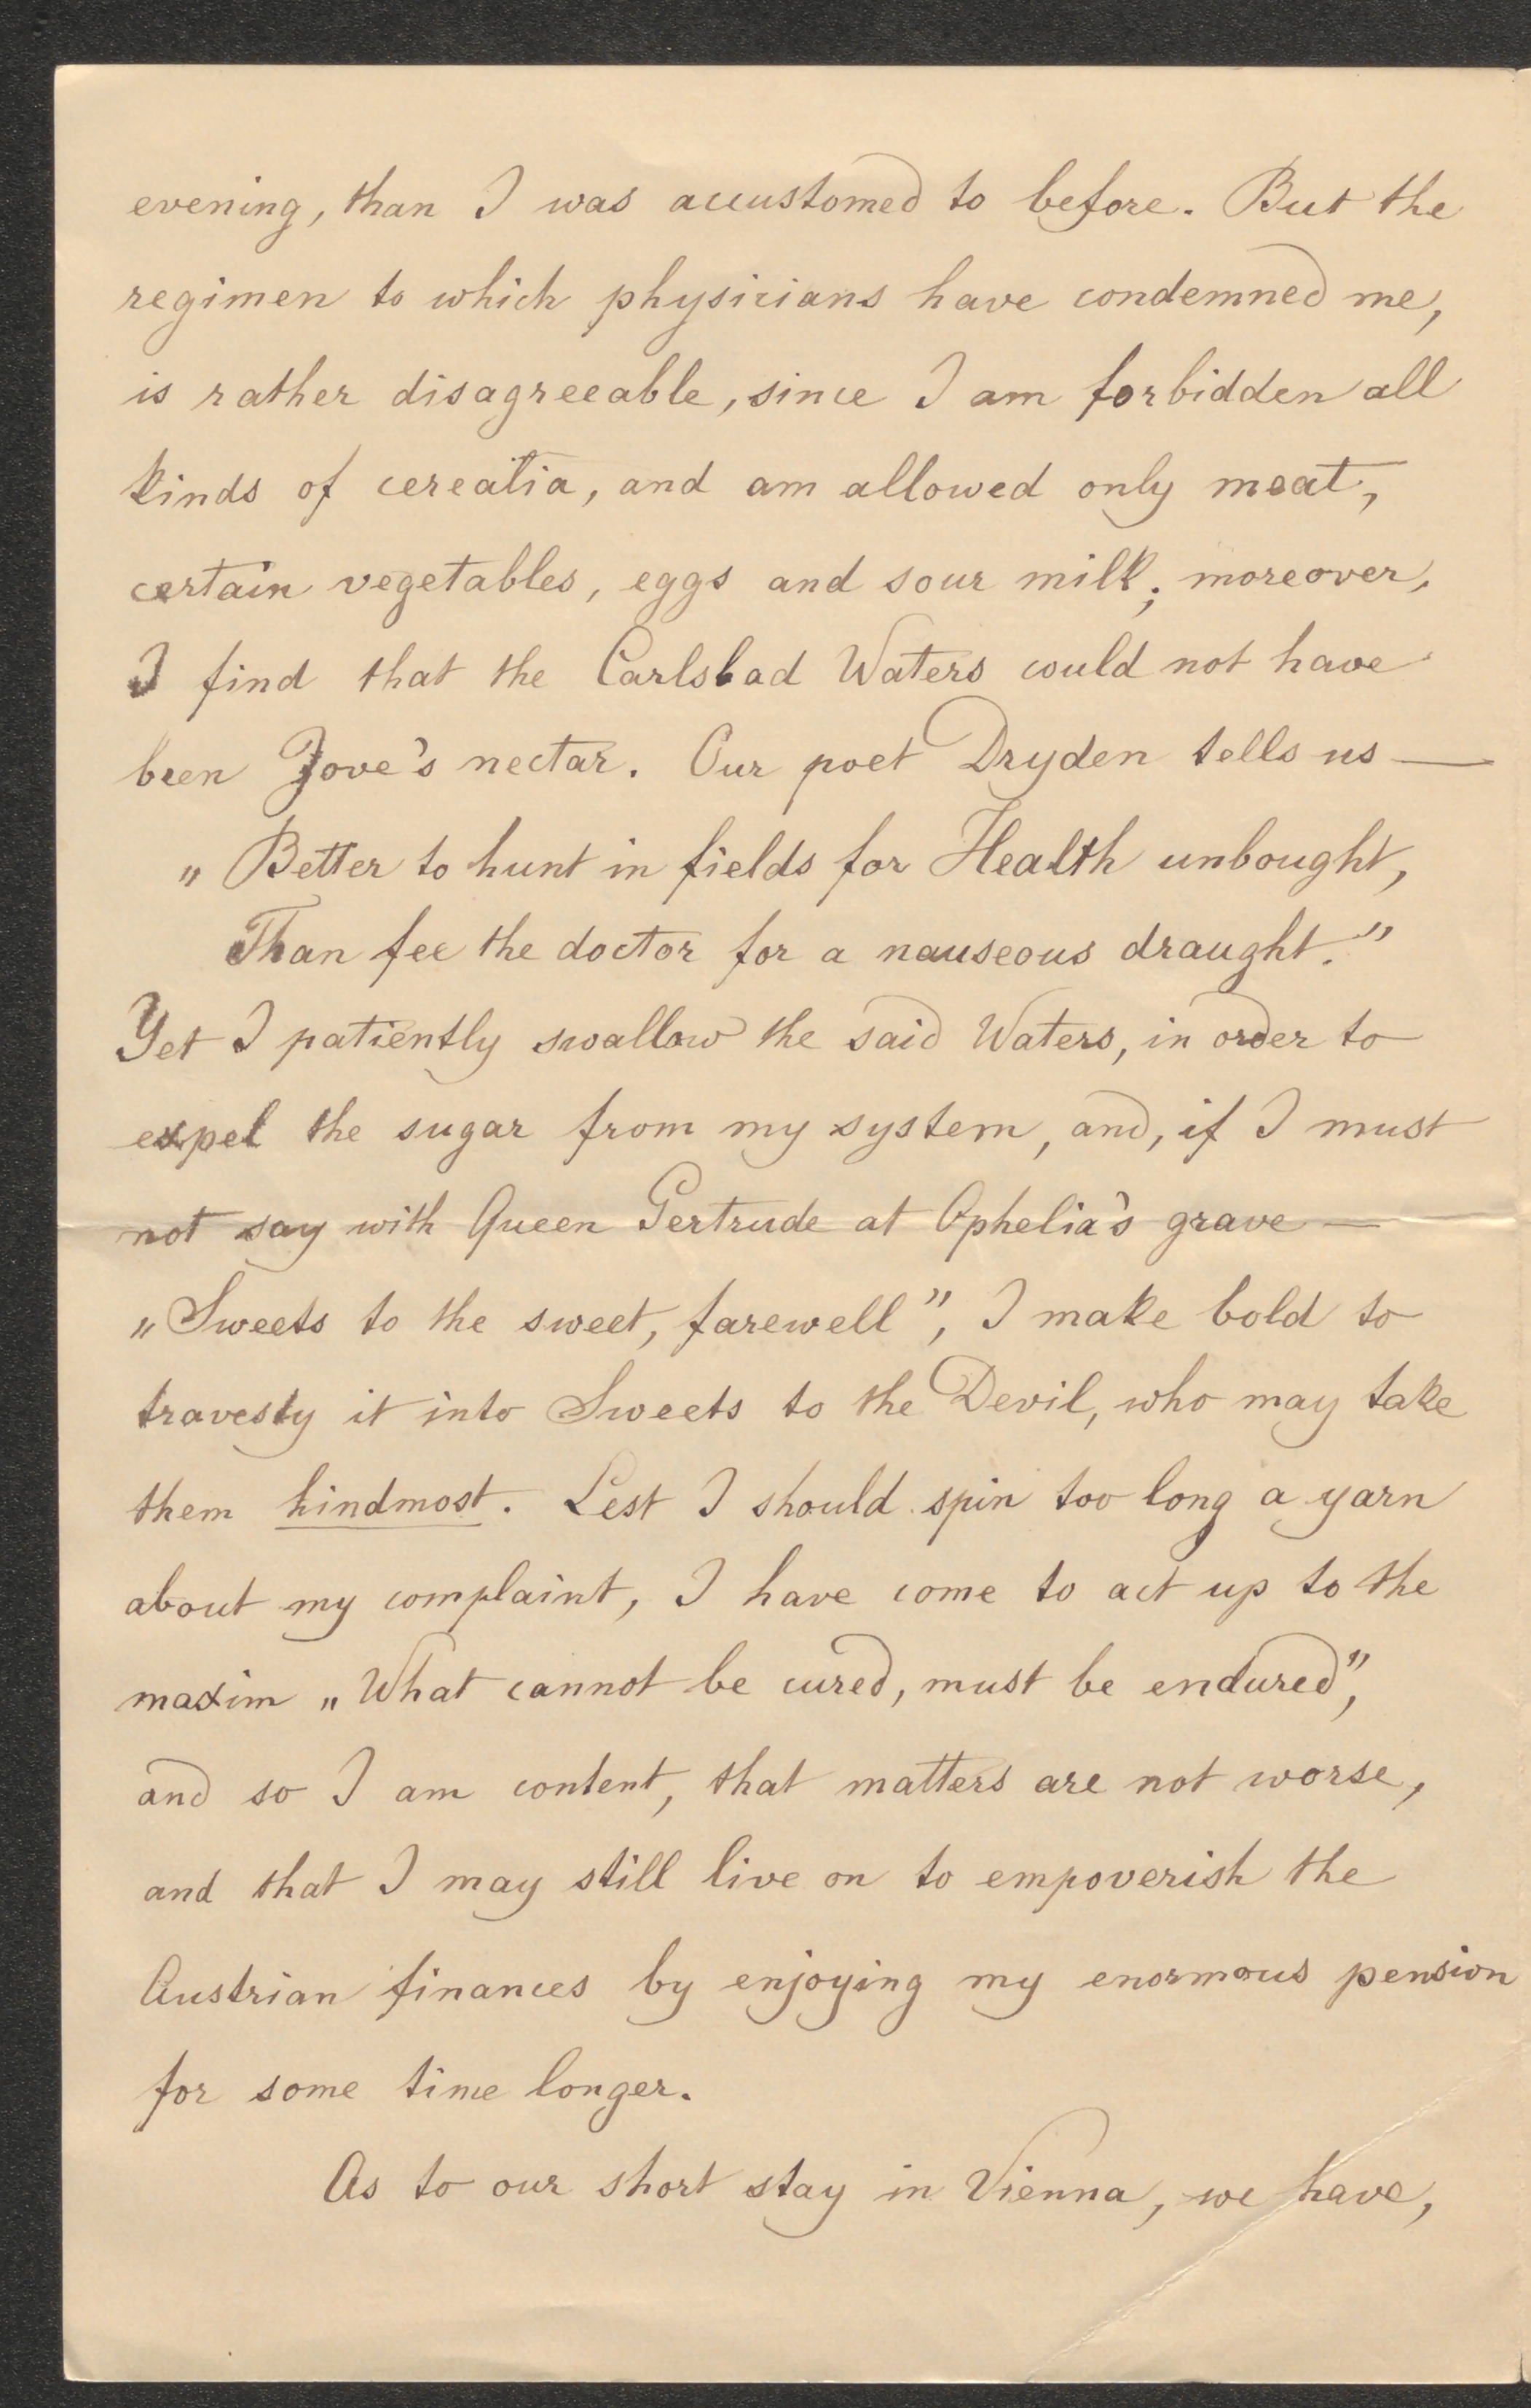 evening, than I was accustomed to before. But the
regimen to which physicians have condemned me,
is rather disagreeable, since I am forbidden all
kinds of cerealia, and am allowed only meat,
certain vegetables, eggs and sour milk; moreover,
I find that the Carlsbad Waters could not have
been Jove's nectar. Our poet Dryden tells us —
„Better to hunt in fields for Health unbought,
Than fee the doctor for a nauseous draught."
Yet I patiently swallow the said Waters, in order to
expel the sugar from my system, and, if I must
not say with Queen Gertrude at Ophelia's grave —
„Sweets to the sweet, farewell", I make bold to
travesty it into Sweets to the Devil, who may take
them hindmost. Lest I should spin too long a yarn
about my complaint, I have come to act up to the
maxim „What cannot be cured, must be endured",
and so I am content, that matters are not worse,
and that I may still live on to empoverish the
Austrian finances by enjoying my enormous pension
for some time longer.
As to our short stay in Vienna, we have,